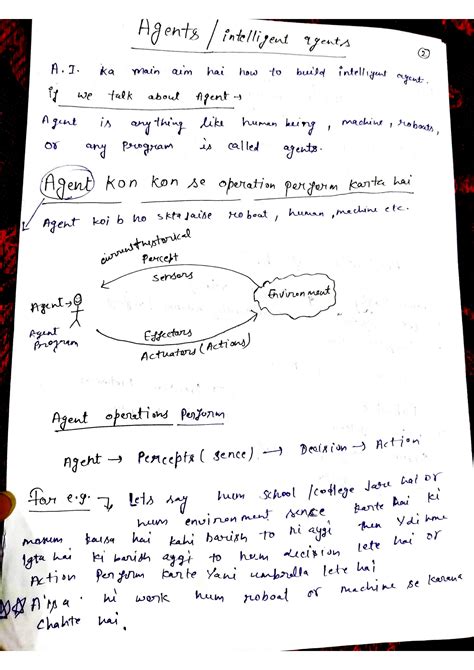 Agents / intelligent agents
②
A.I. ka main aim hai how to build intelligent agent.
if we talk about Agent →
Agent is anything like human being, machine, roboats,
or any Program is called agents.
Agent kon kon se operation perform karta hai
Agent koi b ho skta jaise roboat, human, machine etc.
current+historical
Percept
Sensors
Agent →
Environment
Agent
Program
Effectors
Actuators (Actions)
Agent operations Perform
Agent → Percepts (sence) → Decision → Action
For e.g. → lets say hum school /college jare hai or
hum environment sence karte hai ki
mosum kaisa hai kahi barish to ni aygi then Ydi hme
lgta hai ki barish aygi to hum decision lete hai or
Action Perform karte Yani umbrella lete hai
Aissa hi work hum roboat or machine se karana
chahte hai.